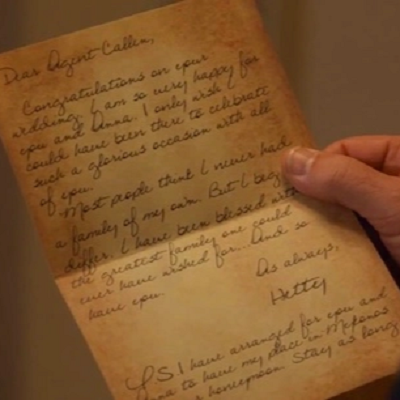 Dear Agent Callen,
Congratulations on your
wedding. I am so very happy for
you and Anna. I only wish I
could have been there to celebrate
such a glorious occasion with all
of you.
Most people think I never had
a family of my own. But I beg
differ. I have been blessed with
the greatest family one could
ever have wished for...And so
have you.
As always,
Hetty
PS I have arranged for you and
Anna to have my place in Mykonos
honeymoon. Stay as long